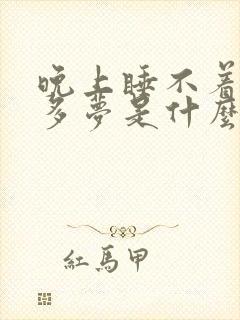 晚上睡不着
多夢是什麼
紅馬甲